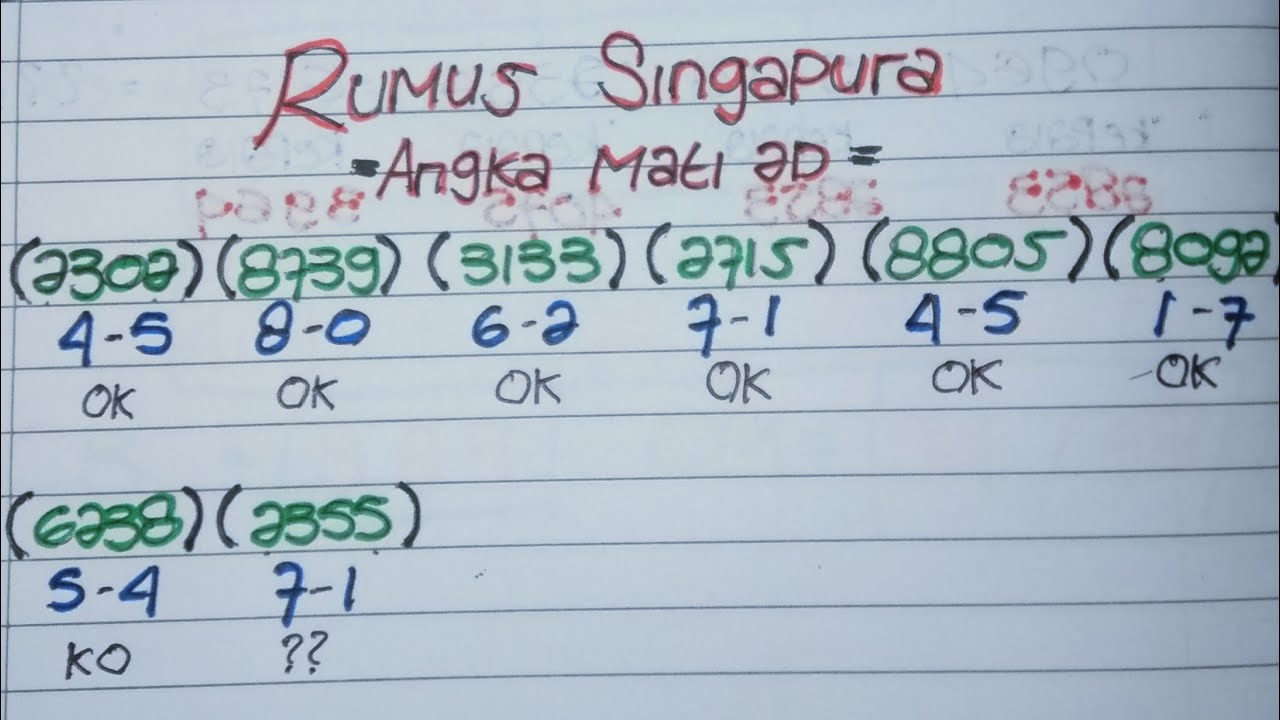 Rumus Singapura
=Angka Mati 2D=
(2302) (8739) (3133) (2715) (8805) (8092)
4-5 8-0 6-2 7-1 4-5 1-7
OK OK OK OK OK OK
(6238) (2355)
5-4 7-1
KO ??